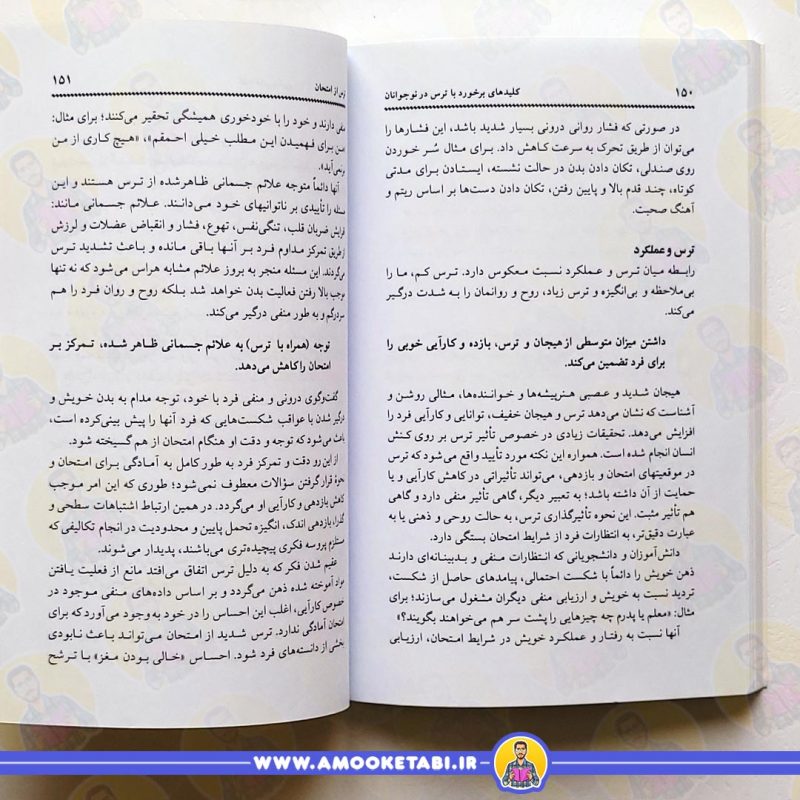 ۱۵۰
کلیدهای برخورد با ترس در نوجوانان
در صورتی که فشار روانی درونی بسیار شدید باشد، این فشارها را
می‌توان از طریق تحرک به سرعت کاهش داد. برای مثال سُر خوردن
روی صندلی، تکان دادن بدن در حالت نشسته، ایستادن برای مدتی
کوتاه، چند قدم بالا و پایین رفتن، تکان دادن دست‌ها بر اساس ریتم و
آهنگ صحبت.
ترس و عملکرد
رابطه میان ترس و عملکرد نسبت معکوس دارد. ترس کم، ما را
بی‌ملاحظه و بی‌انگیزه و ترس زیاد، روح و روانمان را به شدت درگیر
می‌کند.
داشتن میزان متوسطی از هیجان و ترس، بازده و کارآیی خوبی را
برای فرد تضمین می‌کند.
هیجان شدید و عصبی هنرپیشه‌ها و خواننده‌ها، مثالی روشن و
آشناست که نشان می‌دهد ترس و هیجان خفیف، توانایی و کارآیی فرد را
افزایش می‌دهد. تحقیقات زیادی در خصوص تأثیر ترس بر روی کنش
انسان انجام شده است. همواره این نکته مورد تأیید واقع می‌شود که ترس
در موقعیتهای امتحان و بازدهی، می‌تواند تأثیراتی در کاهش کارآیی و یا
حمایت از آن داشته باشد؛ به تعبیر دیگر، گاهی تأثیر منفی دارد و گاهی
هم تأثیر مثبت. این نحوه تأثیرگذاری ترس، به حالت روحی و ذهنی یا به
عبارت دقیق‌تر، به انتظارات فرد از شرایط امتحان بستگی دارد.
دانش‌آموزان و دانشجویانی که انتظارات منفی و بدبینانه‌ای دارند
ذهن خویش را دائماً با شکست احتمالی، پیامدهای حاصل از شکست،
تردید نسبت به خویش و ارزیابی منفی دیگران مشغول می‌سازند؛ برای
مثال: «معلم یا پدرم چه چیزهایی را پشت سر هم می‌خواهند بگویند؟»
آنها نسبت به رفتار و عملکرد خویش در شرایط امتحان، ارزیابی
ترس از امتحان
۱۵۱
منفی دارند و خود را با خودخوری همیشگی تحقیر می‌کنند؛ برای مثال:
«من برای فهمیدن این مطلب خیلی احمقم»، «هیچ کاری از من
برنمی‌آید».
آنها دائماً متوجه علائم جسمانی ظاهرشده از ترس هستند و این
مسئله را تأییدی بر ناتوانیهای خود می‌دانند. علائم جسمانی مانند:
افزایش ضربان قلب، تنگی‌نفس، تهوع، فشار و انقباض عضلات و لرزش
از طریق تمرکز مداوم فرد بر آنها باقی مانده و باعث تشدید ترس
می‌گردند. این مسئله منجر به بروز علائم مشابه هراس می‌شود که نه تنها
موجب بالا رفتن فعالیت بدن خواهد شد بلکه روح و روان فرد را هم
سردرگم و به طور منفی درگیر می‌کند.
توجه (همراه با ترس) به علائم جسمانی ظاهر شده، تمرکز بر
امتحان را کاهش می‌دهد.
گفت‌وگوی درونی و منفی فرد با خود، توجه مدام به بدن خویش و
درگیر شدن با عواقب شکست‌هایی که فرد آنها را پیش بینی‌کرده است،
باعث می‌شود که توجه و دقت او هنگام امتحان از هم گسیخته شود.
از این رو دقت و تمرکز فرد به طور کامل به آمادگی برای امتحان و
نحوهٔ قرار گرفتن سؤالات معطوف نمی‌شود؛ طوری که این امر موجب
کاهش بازدهی و کارآیی او می‌گردد. در همین ارتباط اشتباهات سطحی و
گذرا، بازدهی اندک، انگیزه تحمل پایین و محدودیت در انجام تکالیفی که
مستلزم پروسه فکری پیچیده‌تری می‌باشند، پدیدار می‌شوند.
عقیم شدن فکر که به دلیل ترس اتفاق می‌افتد مانع از فعلیت یافتن
مواد آموخته شده ذهن می‌گردد و بر اساس داده‌های منفی موجود در
خصوص کارآیی، اغلب این احساس را در خود به وجود می‌آورد که برای
امتحان آمادگی ندارد. ترس شدید از امتحان می‌تواند باعث نابودی
بخشی از دانسته‌های فرد شود. احساس «خالی بودن مغز» با ترشح
WWW.AMOOKETABI.IR